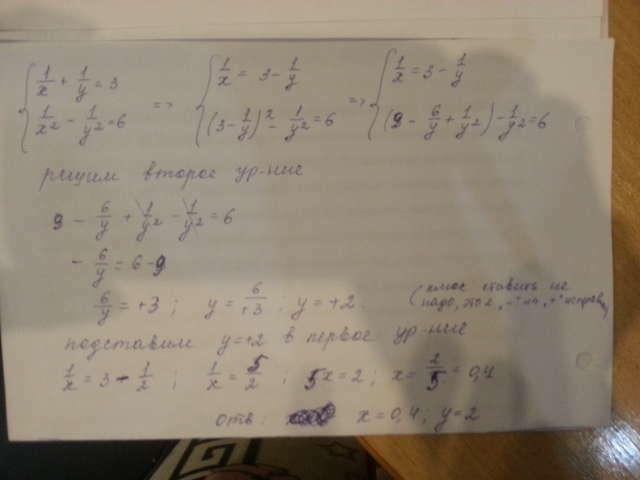 { 1/x + 1/y = 3 => { 1/x = 3 - 1/y => { 1/x = 3 - 1/y
{ 1/x² - 1/y² = 6 { (3 - 1/y)² - 1/y² = 6 { (9 - 6/y + 1/y²) - 1/y² = 6
решим второе ур-ние
9 - 6/y + 1/y² - 1/y² = 6
- 6/y = 6 - 9
6/y = +3 ; y = 6/+3 ; y = +2. (плюс ставить не
надо, это я "-" на "+" исправ)
подставим y=+2 в первое ур-ние
1/x = 3 - 1/2 ; 1/x = 5/2 ; 5x = 2 ; x = 2/5 = 0,4
отв: x = 0,4 ; y = 2